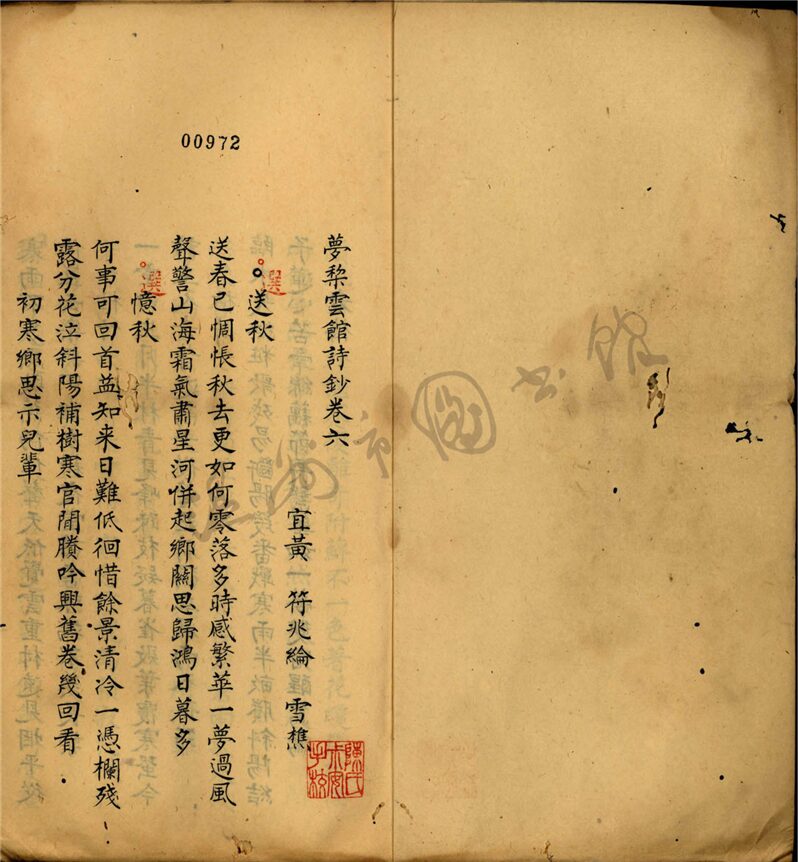 00972
夢棃雲館詩鈔卷六
宜黃 符兆綸 雪樵
選
送秋
送春已惆悵秋去更如何零落多時感繁華一夢過風
聲警山海霜氣肅星河併起鄉關思歸鴻日暮多
選
憶秋
何事可回首益知来日難低徊惜餘景清冷一憑欄殘
露分花泣斜陽補樹寒官閒賸吟興舊卷幾回看
初寒鄉思示兒輩